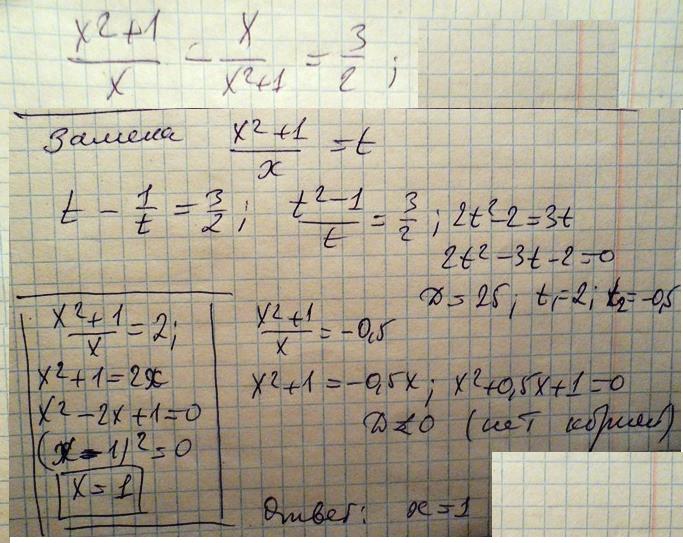 (x²+1)/x - x/(x²+1) = 3/2 ;
Замена (x²+1)/x = t
t - 1/t = 3/2 ; (t²-1)/t = 3/2 ; 2t²-2=3t
2t²-3t-2=0
D=25; t₁=2; t₂=-0,5
(x²+1)/x = 2;
x²+1=2x
x²-2x+1=0
(x-1)²=0
x=1
(x²+1)/x = -0,5
x²+1=-0,5x; x²+0,5x+1=0
D<0 (нет корней)
Ответ: x=1